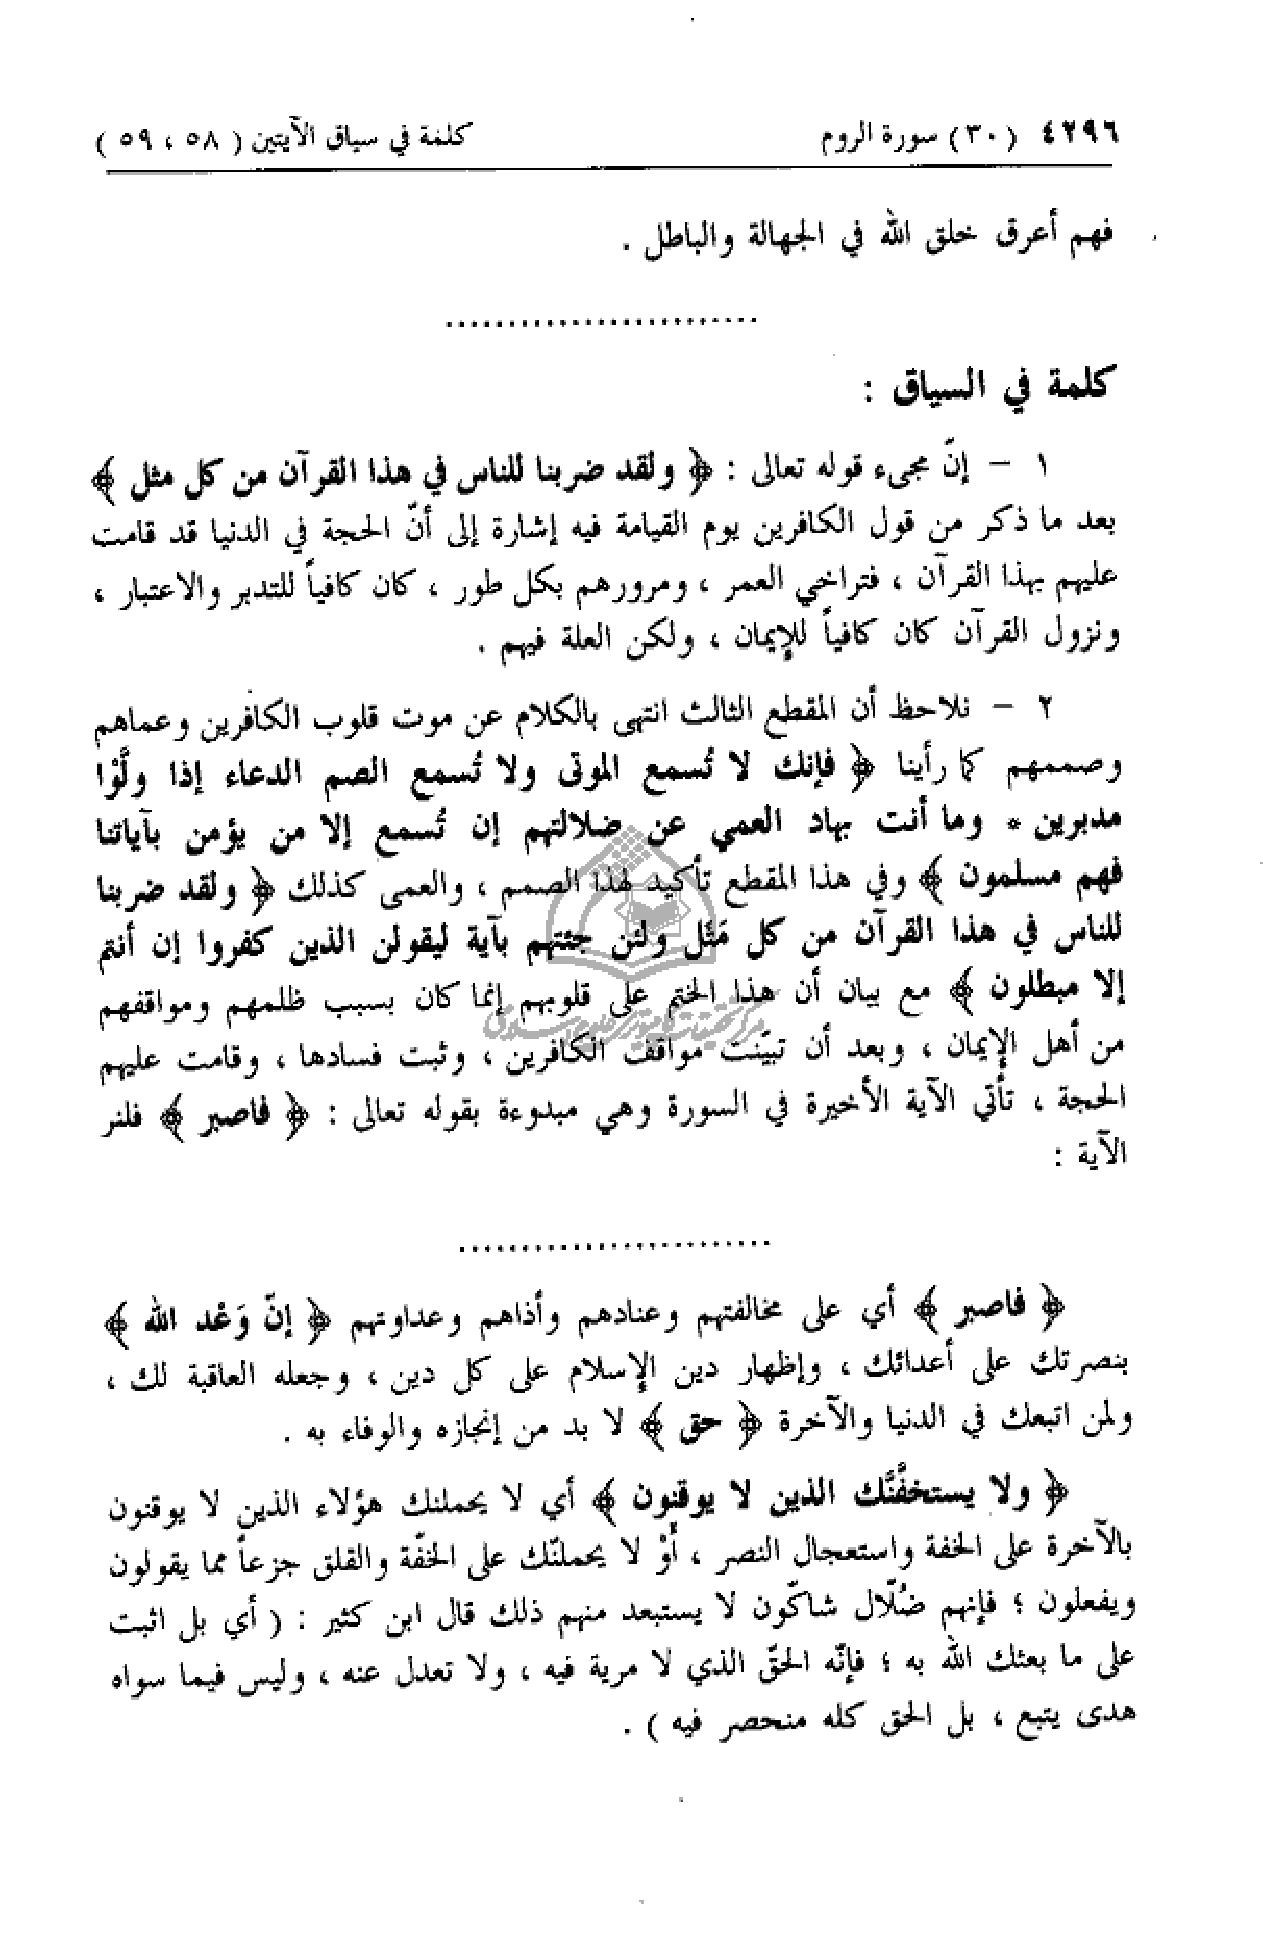 ٤٢٩٦ (٣٠) سورة الروم كلمة في سياق الآيتين ( ٥٨ ، ٥٩ )
فهم أعرق خلق الله في الجهالة والباطل .
........................
كلمة في السياق :
١ - إنّ مجيء قوله تعالى : ﴿ ولقد ضربنا للناس في هذا القرآن من كل مثل ﴾
بعد ما ذكر من قول الكافرين يوم القيامة فيه إشارة إلى أنّ الحجة في الدنيا قد قامت
عليهم بهذا القرآن ، فتراخي العمر ، ومرورهم بكل طور ، كان كافياً للتدبر والاعتبار ،
ونزول القرآن كان كافياً للإيمان ، ولكن العلة فيهم .
٢ - نلاحظ أن المقطع الثالث انتهى بالكلام عن موت قلوب الكافرين وعماهم
وصممهم كما رأينا ﴿ فإنك لا تُسمع الموتى ولا تُسمع الصم الدعاء إذا ولَّوْا
مدبرين * وما أنت بهاد العمي عن ضلالتهم إن تُسمع إلا من يؤمن بآياتنا
فهم مسلمون ﴾ وفي هذا المقطع تأكيد لهذا الصمم ، والعمى كذلك ﴿ ولقد ضربنا
للناس في هذا القرآن من كل مَثَل ولئن جئتهم بآية ليقولن الذين كفروا إن أنتم
إلا مبطلون ﴾ مع بيان أن هذا الختم على قلوبهم إنما كان بسبب ظلمهم ومواقفهم
من أهل الإيمان ، وبعد أن تبيّنت مواقف الكافرين ، وثبت فسادها ، وقامت عليهم
الحجة ، تأتي الآية الأخيرة في السورة وهي مبدوءة بقوله تعالى : ﴿ فاصبر ﴾ فلنر
الآية :
........................
﴿ فاصبر ﴾ أي على مخالفتهم وعنادهم وأذاهم وعداوتهم ﴿ إنّ وَعْد الله ﴾
بنصرتك على أعدائك ، وإظهار دين الإسلام على كل دين ، وجعله العاقبة لك ،
ولمن اتبعك في الدنيا والآخرة ﴿ حق ﴾ لا بد من إنجازه والوفاء به .
﴿ ولا يستخفَّنَّك الذين لا يوقنون ﴾ أي لا يحملنك هؤلاء الذين لا يوقنون
بالآخرة على الخفة واستعجال النصر ، أَوْ لا يحملنّك على الخفّة والقلق جزعاً مما يقولون
ويفعلون ؛ فإنهم ضُلّال شاكّون لا يستبعد منهم ذلك قال ابن كثير : ( أي بل اثبت
على ما بعثك الله به ؛ فإنّه الحقّ الذي لا مرية فيه ، ولا تعدل عنه ، وليس فيما سواه
هدى يتبع ، بل الحق كله منحصر فيه ) .